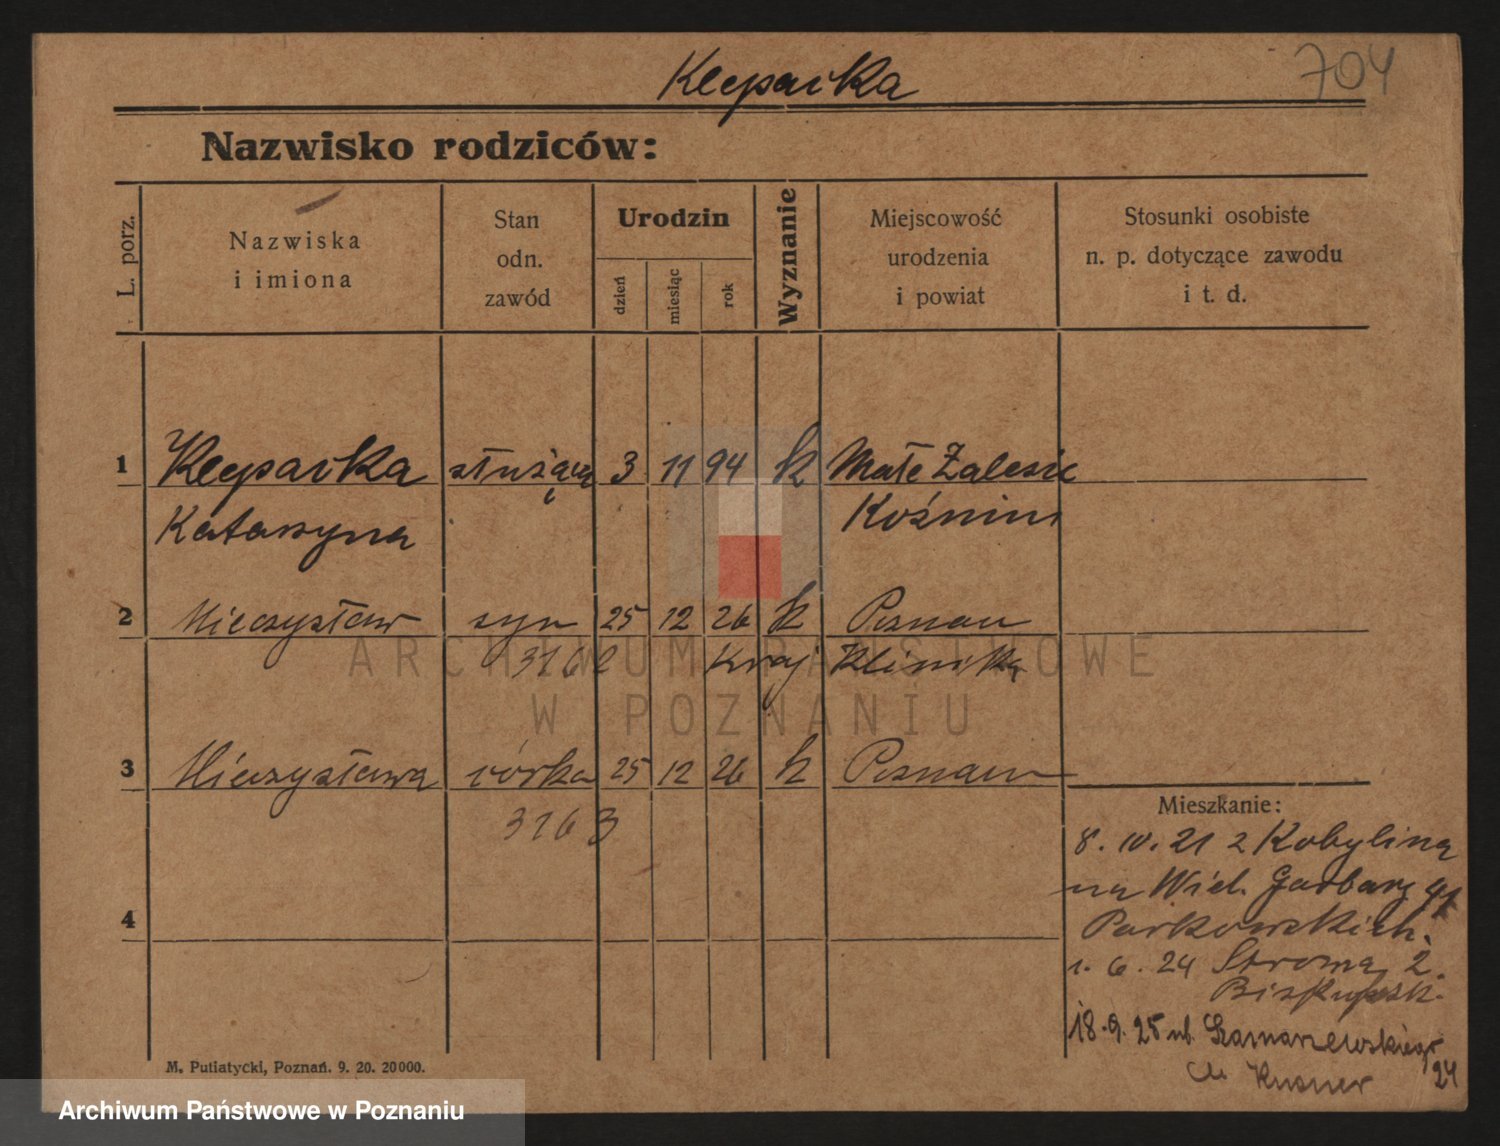 Kleparka
704
Nazwisko rodziców:
L. porz.
Nazwiska
i imiona
Stan
odn.
zawód
Urodzin
dzień
miesiąc
rok
Wyznanie
Miejscowość
urodzenia
i powiat
Stosunki osobiste
n. p. dotyczące zawodu
i t. d.
1 Kleparka służąca 3 11 94 k Małe Zalesie
Katarzyna Koźmin
2 Mieczysław syn 25 12 26 k Poznań
3162 Kraj Klinika
3 Mieczysława córka 25 12 26 k Poznań
3163
4
Mieszkanie:
8. IV. 21 z Kobylina
na Wiel. Garbary 41
Parkowskich.
1. 6. 24 Stroma 2.
18. 9. 25 ul. Szamarzewskiego
24
M. Putiatycki, Poznań. 9. 20. 20000.
ARCHIWUM PAŃSTWOWE
W POZNANIU
Archiwum Państwowe w Poznaniu